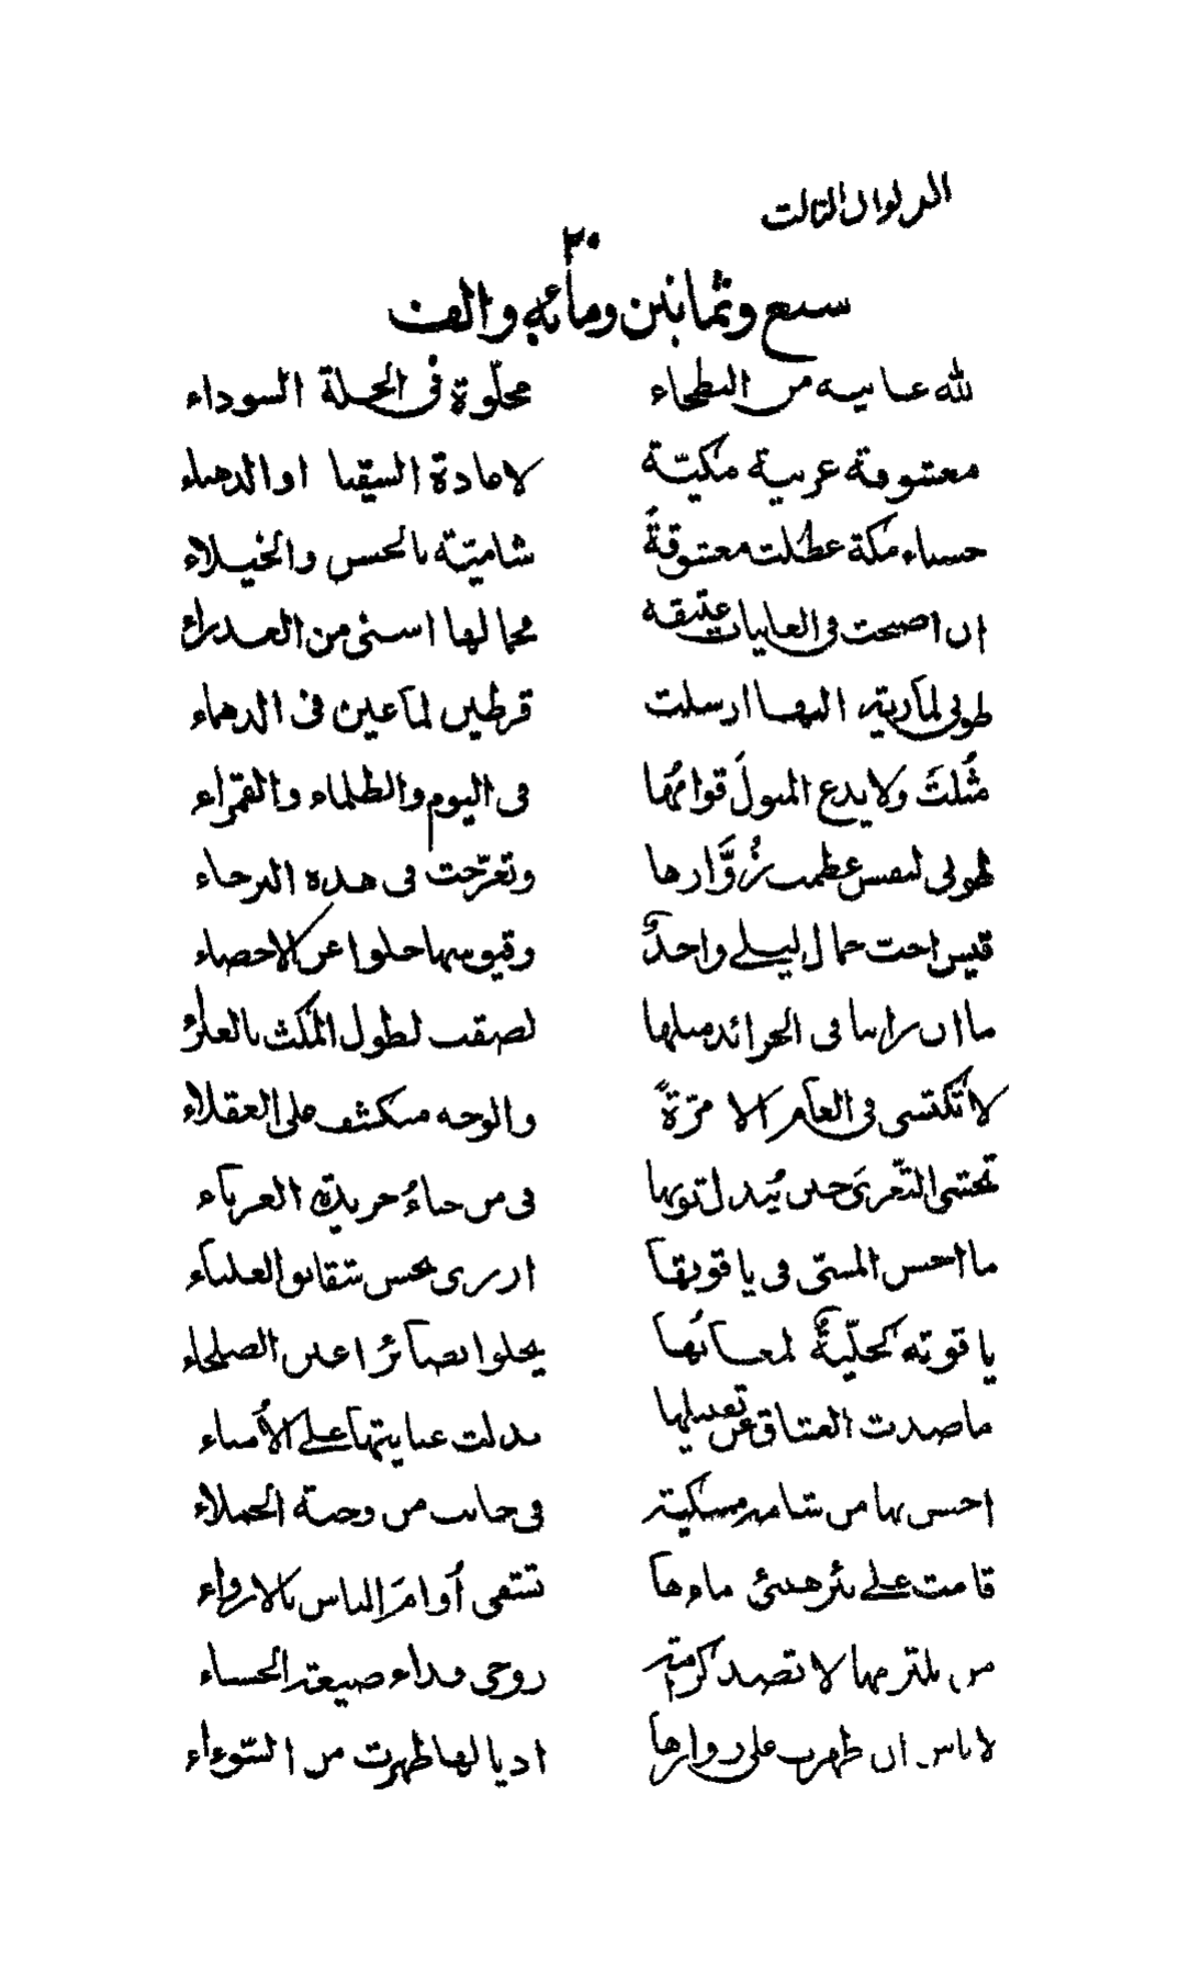 الديوان الثالث
٢٠
سبع وثمانين ومأئة والف
لله غانية من البطحاء محلّوة فى الحلة السوداء
معشوقة عربية مكيّة لا غادة السيقيا او الدهناء
حسناء مكة عطلت معشوقةً شاميّة بالحسن والخيلاء
ان اصبحت فى الغانيات عتيقة فجمالها اسنى من العذراء
طوبى لمارية اليها ارسلت قرطين لماعين فى الدهماء
مثُلتَ ولا يدع المثولَ قوامُها فى اليوم والظلماء والقمراء
طوبى لنفس عظمت زُوَّارها وتعرّجت فى هذه البرحاء
قيس احب جمال ليلى واحدٌ وقيوسها جلوا عن الاحصاء
ما ان راينا فى الخرائد مثلها لصقت لطول المكث بالغبراء
لا تكتسى فى العام الا مرّةً والوجه منكشف على العقلاء
تخشى التعّرىَ حين يُبدل ثوبها فى من حياءُ خريدة العرباء
ما احسن المسىّ فى ياقوتها ازرى بحسن شقائق العلياء
ياقوته كحليّةٌ لمعانُها يجلوا بصائرا عين الصلحاء
ما صدت العشاق عن تقبيلها بذلت عنايتها على الاُمناء
احسن بها من شامة مسكية فى جانب من وجنة الجملاء
قامت على بئر هنئ ماءها تشفى اُوامَ الناس بالارواء
من يلتزمها لا تصد كرامة روحى فداء صيغة الحسناء
لا باس ان ظهرت على زوارها اذيالها طهرت من السّوءاء